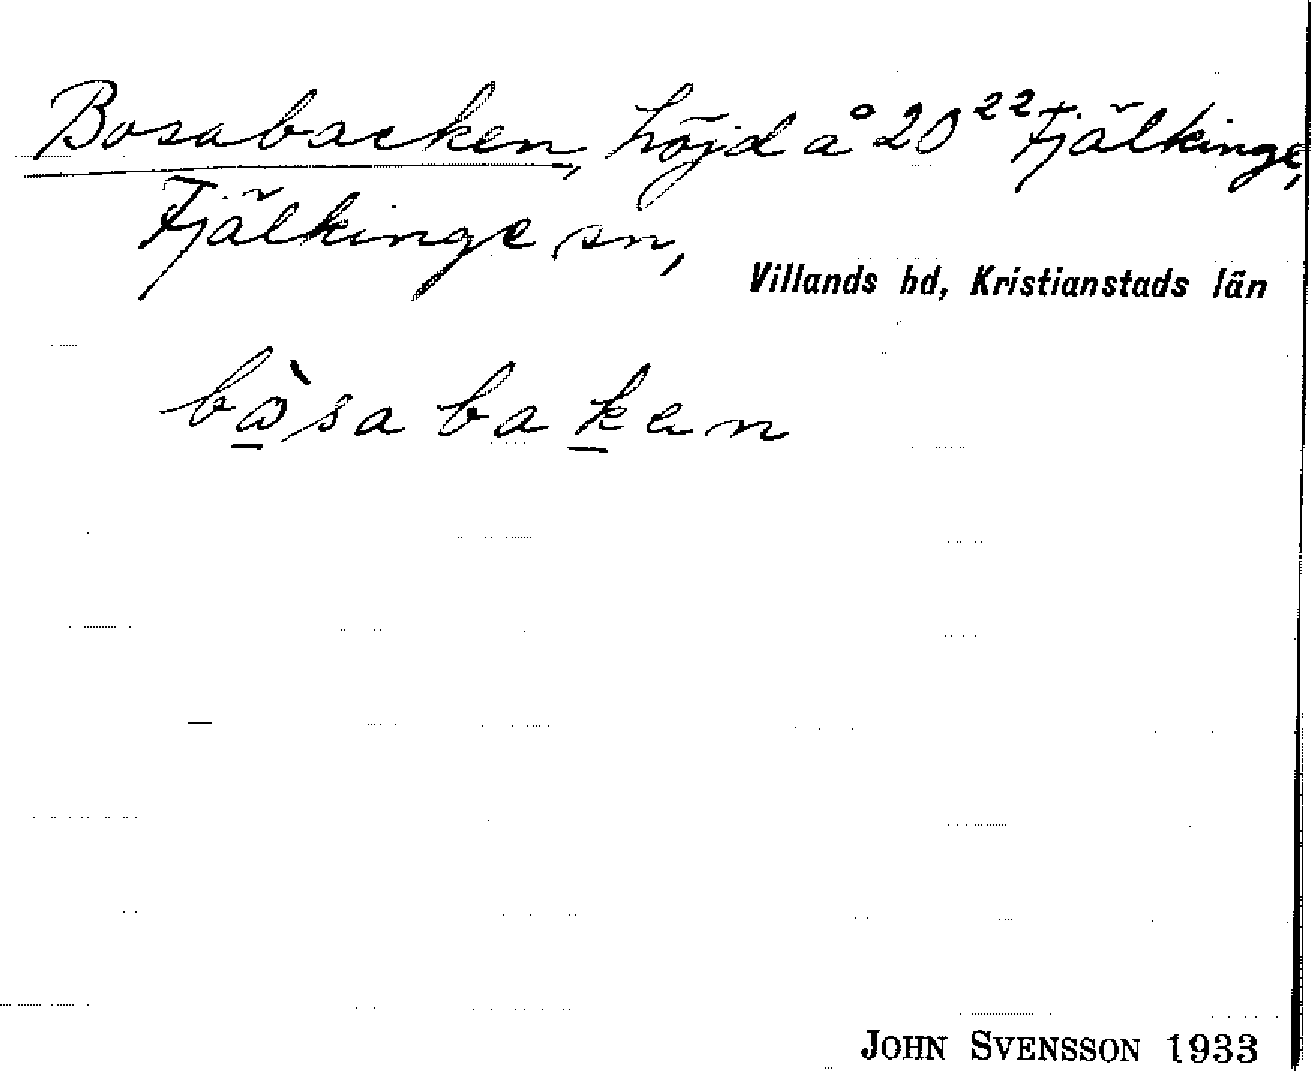 Bosabacken, höjd å 20²² Fjälkinge,
Fjälkinge sn,
Villands hd, Kristianstads län
bòsabaken
JOHN SVENSSON 1933